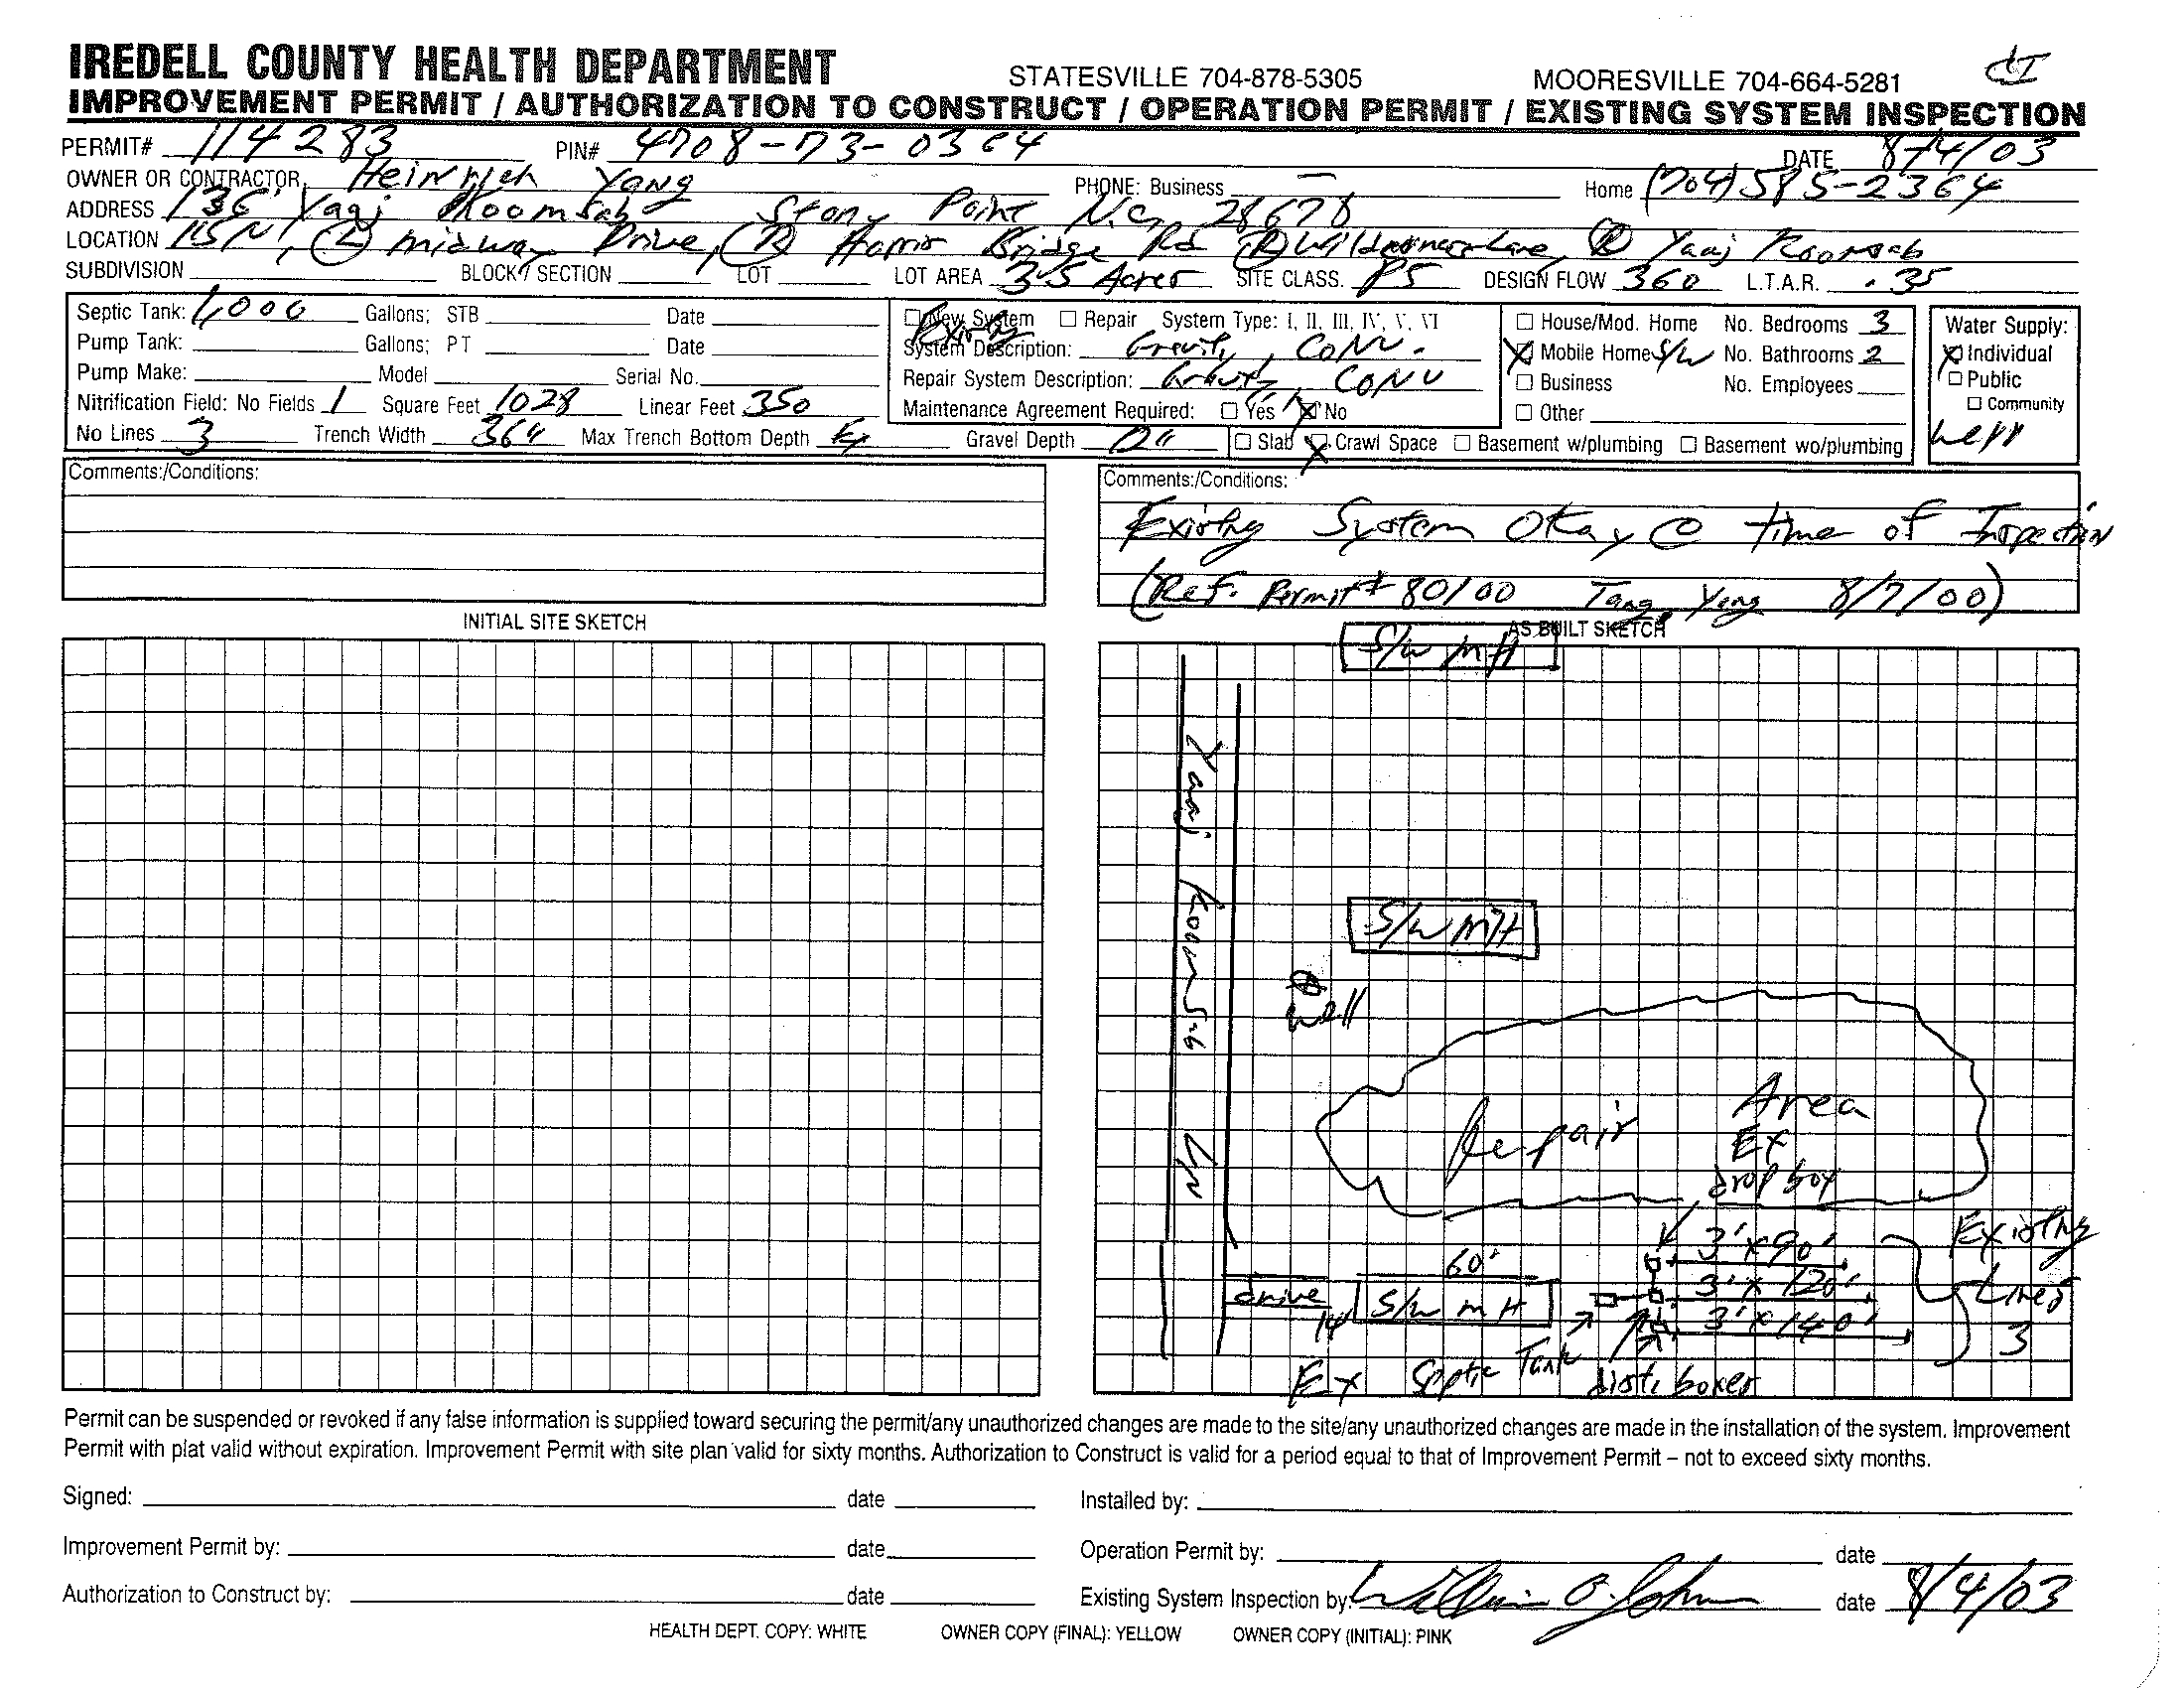 IREDELL COUNTY HEALTH DEPARTMENT STATESVILLE 704-878-5305 MOORESVILLE 704-664-5281
IMPROVEMENT PERMIT / AUTHORIZATION TO CONSTRUCT / OPERATION PERMIT / EXISTING SYSTEM INSPECTION
PERMIT# 114283 PIN# 4708-73-0364 DATE 8/4/03
OWNER OR CONTRACTOR Heinrich Yang PHONE: Business — Home (704) 585-2364
ADDRESS 136 Yaaj Koomsab Stony Point N.C. 28678
LOCATION 115 N, (L) Midway Drive, (R) Harris Bridge Rd (R) Wilderness Lane, (R) Yaaj Koomsab
SUBDIVISION BLOCK / SECTION LOT LOT AREA 3.5 Acres SITE CLASS. PS DESIGN FLOW 360 L.T.A.R. .35
Septic Tank: 1,000 Gallons; STB Date
Pump Tank: Gallons; PT Date
Pump Make: Model Serial No.
Nitrification Field: No Fields 1 Square Feet 1028 Linear Feet 350
No Lines 3 Trench Width 36" Max Trench Bottom Depth Ex Gravel Depth 12"
New System Repair System Type: I, II, III, IV, V, VI
Existing
System Description: Gravity, CONV.
Repair System Description: Gravity, CONV
Maintenance Agreement Required: Yes X No
House/Mod. Home No. Bedrooms 3
X Mobile Home S/W No. Bathrooms 2
Business No. Employees
Other
Slab X Crawl Space Basement w/plumbing Basement wo/plumbing
Water Supply:
X Individual
Public
Community
Well
Comments:/Conditions:
Comments:/Conditions:
Existing System Okay @ time of Inspection
(Ref. Permit # 80100 Tang, Yang 8/7/00)
INITIAL SITE SKETCH
AS BUILT SKETCH
S/W MH
Yaaj Koomsab LN
S/W MH
Well
Repair Area
Ex
drop box
3'x90'
3'x120'
3'x140'
Existing
Lines
3
60'
drive
14'
S/W MH
Ex Septic Tank
dist. boxes
Permit can be suspended or revoked if any false information is supplied toward securing the permit/any unauthorized changes are made to the site/any unauthorized changes are made in the installation of the system. Improvement
Permit with plat valid without expiration. Improvement Permit with site plan valid for sixty months. Authorization to Construct is valid for a period equal to that of Improvement Permit – not to exceed sixty months.
Signed: date Installed by:
Improvement Permit by: date Operation Permit by: date
Authorization to Construct by: date Existing System Inspection by: William O. Johnson date 8/4/03
HEALTH DEPT. COPY: WHITE OWNER COPY (FINAL): YELLOW OWNER COPY (INITIAL): PINK